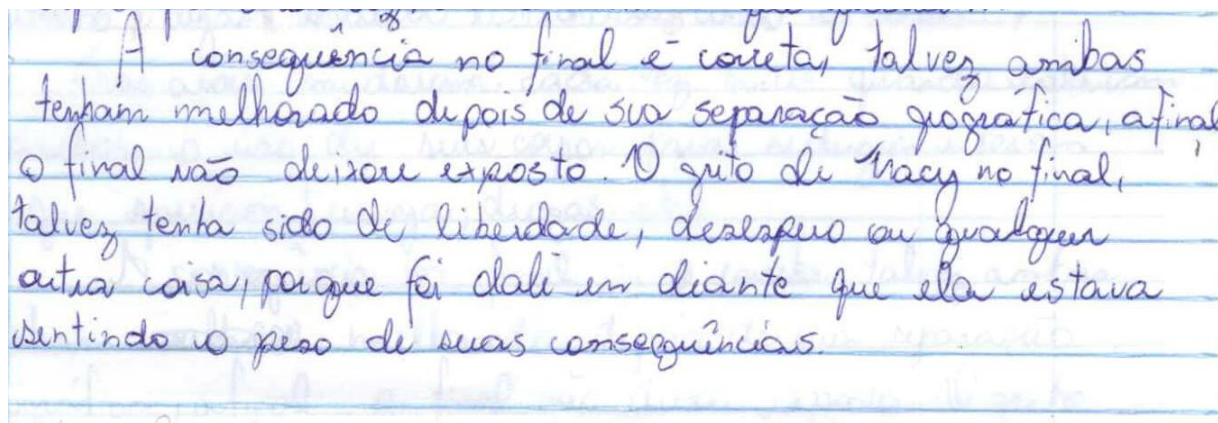 A consequência no final é correta, talvez ambas
tenham melhorado depois de sua separação geográfica, afinal
o final não deixou exposto. O grito de Tracy no final,
talvez tenha sido de liberdade, desespero ou qualquer
outra coisa, porque foi dali em diante que ela estava
sentindo o peso de suas consequências.